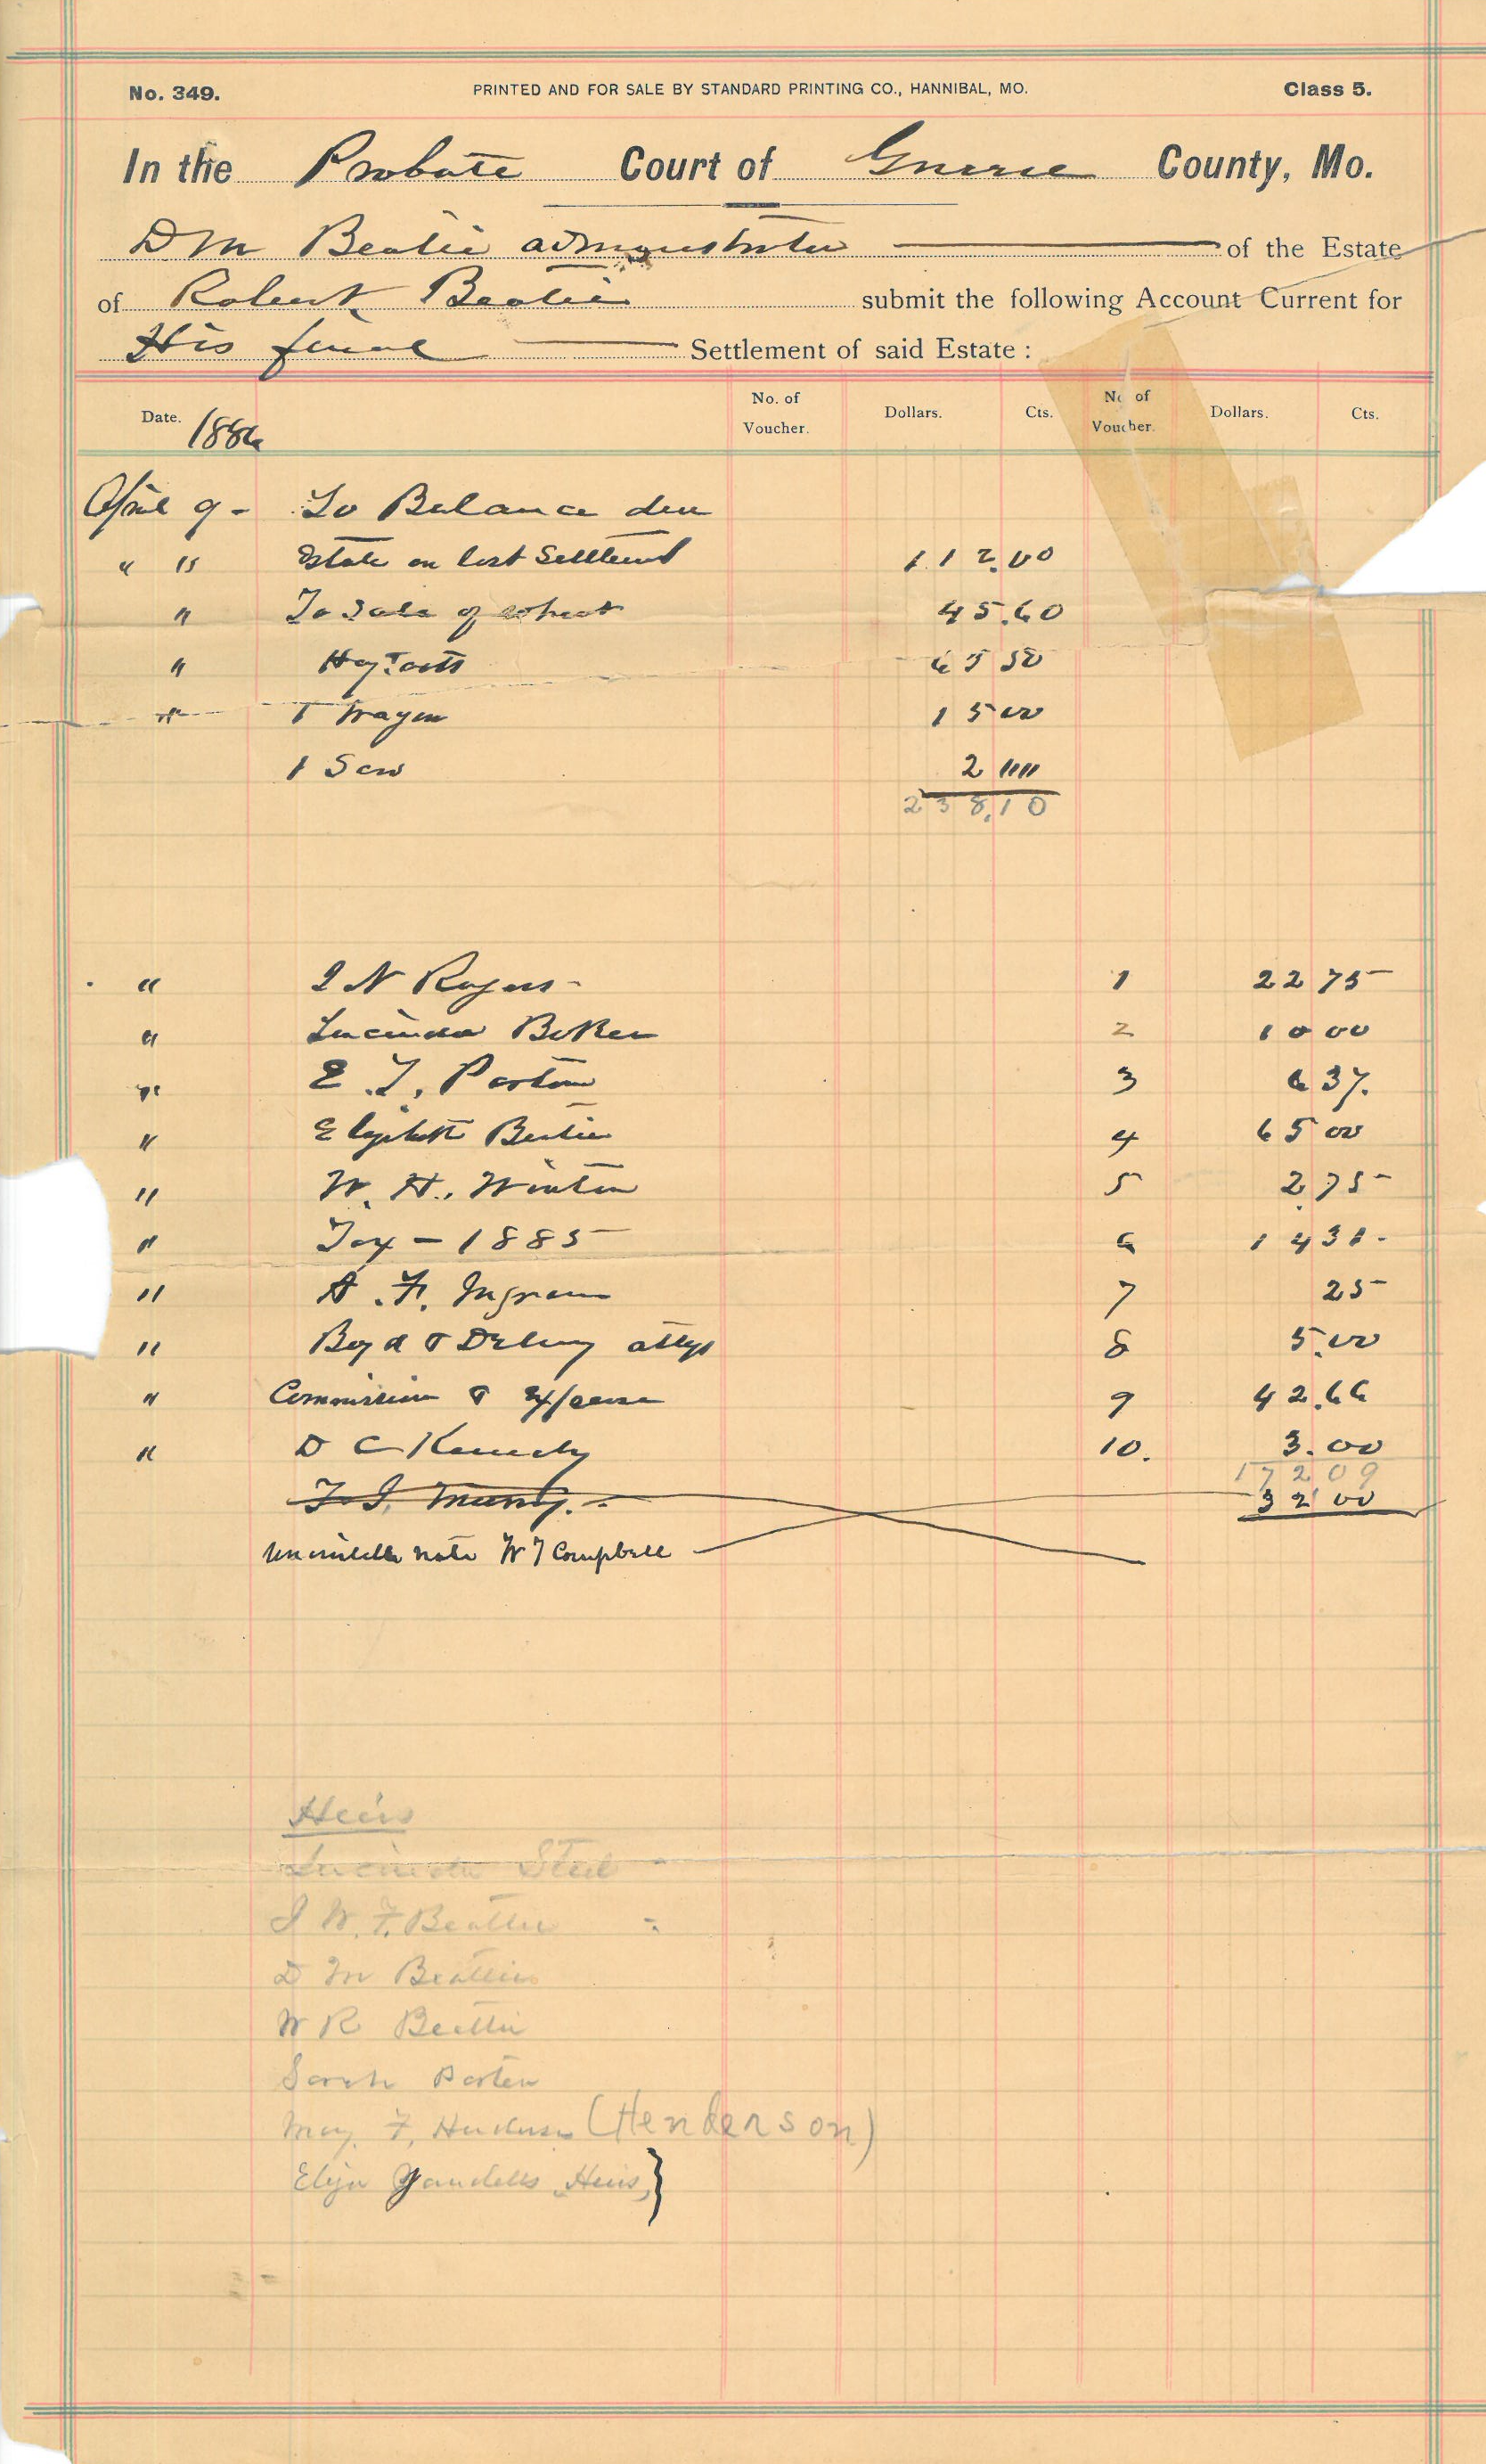 No. 349. PRINTED AND FOR SALE BY STANDARD PRINTING CO., HANNIBAL, MO. Class 5.
In the Probate Court of Greene County, Mo.
D M Beatie of the Estate
of Robert Beatie submit the following Account Current for
His final Settlement of said Estate :
Date. 1886 No. of Voucher. Dollars. Cts. No. of Voucher. Dollars. Cts.
April 9 - To Balance due
" " Estate on last Settlement 112.00
" To Sale of wheat 45.60
" 63 50
" 1 Wagon 15 00
1 Sow 2 00
238.10
" I N Rogers - 1 22 75
" Lucinda 2 10 00
" E. T. 3 6 37.
" Elizabeth Beatie 4 65 00
" W. H. Winton 5 2.75
" Tax - 1885 6 14 31 -
" A. F. Ingram 7 25
" Boyd & Delany attys 8 5.00
" Commission & Expense 9 42.66
" D C Kennedy 10. 3.00
172 09
32 00
note W T Campbell
Heirs
Lucinda Steel
J W. F. Beattie
D M Beattie
W R Beattie
Sarah
F. (Henderson)
Yandells Heirs }